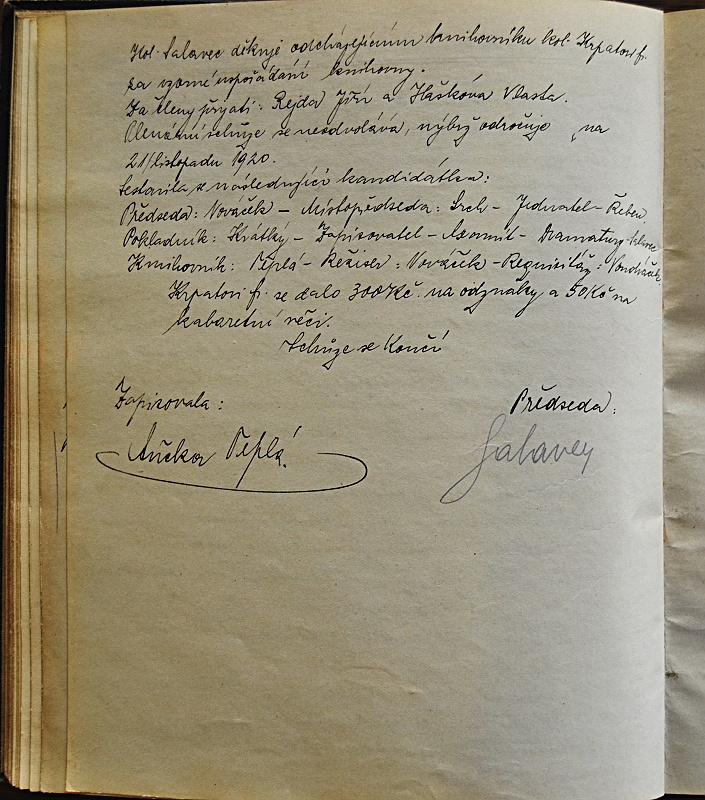 Kol. Salavec děkuje odcházejícímu knihovníku kol. Krpatovi fr.
za vzorné uspořádání knihovny.
Za členy přijati: Rejda Jiří a Hašková Vlasta.
Plenární schůze se neodvolává, nýbrž odročuje na
21 listopadu 1920.
Sestavila se následující kandidátka:
Předseda: Nováček – Místopředseda: Srch – Jednatel –
Pokladník: Krátký – Zapisovatel – Axamit – Dramaturg – Salavec
Knihovník: Teplá – Režiser: Nováček – Requisitář: Vondráček.
Krpatovi fr. se dalo 300 Kč. na odznaky a 50 Kč na
kabaretní věci.
Schůze se Končí
Zapisovala:
Předseda:
Aučka Teplá.
Salavec